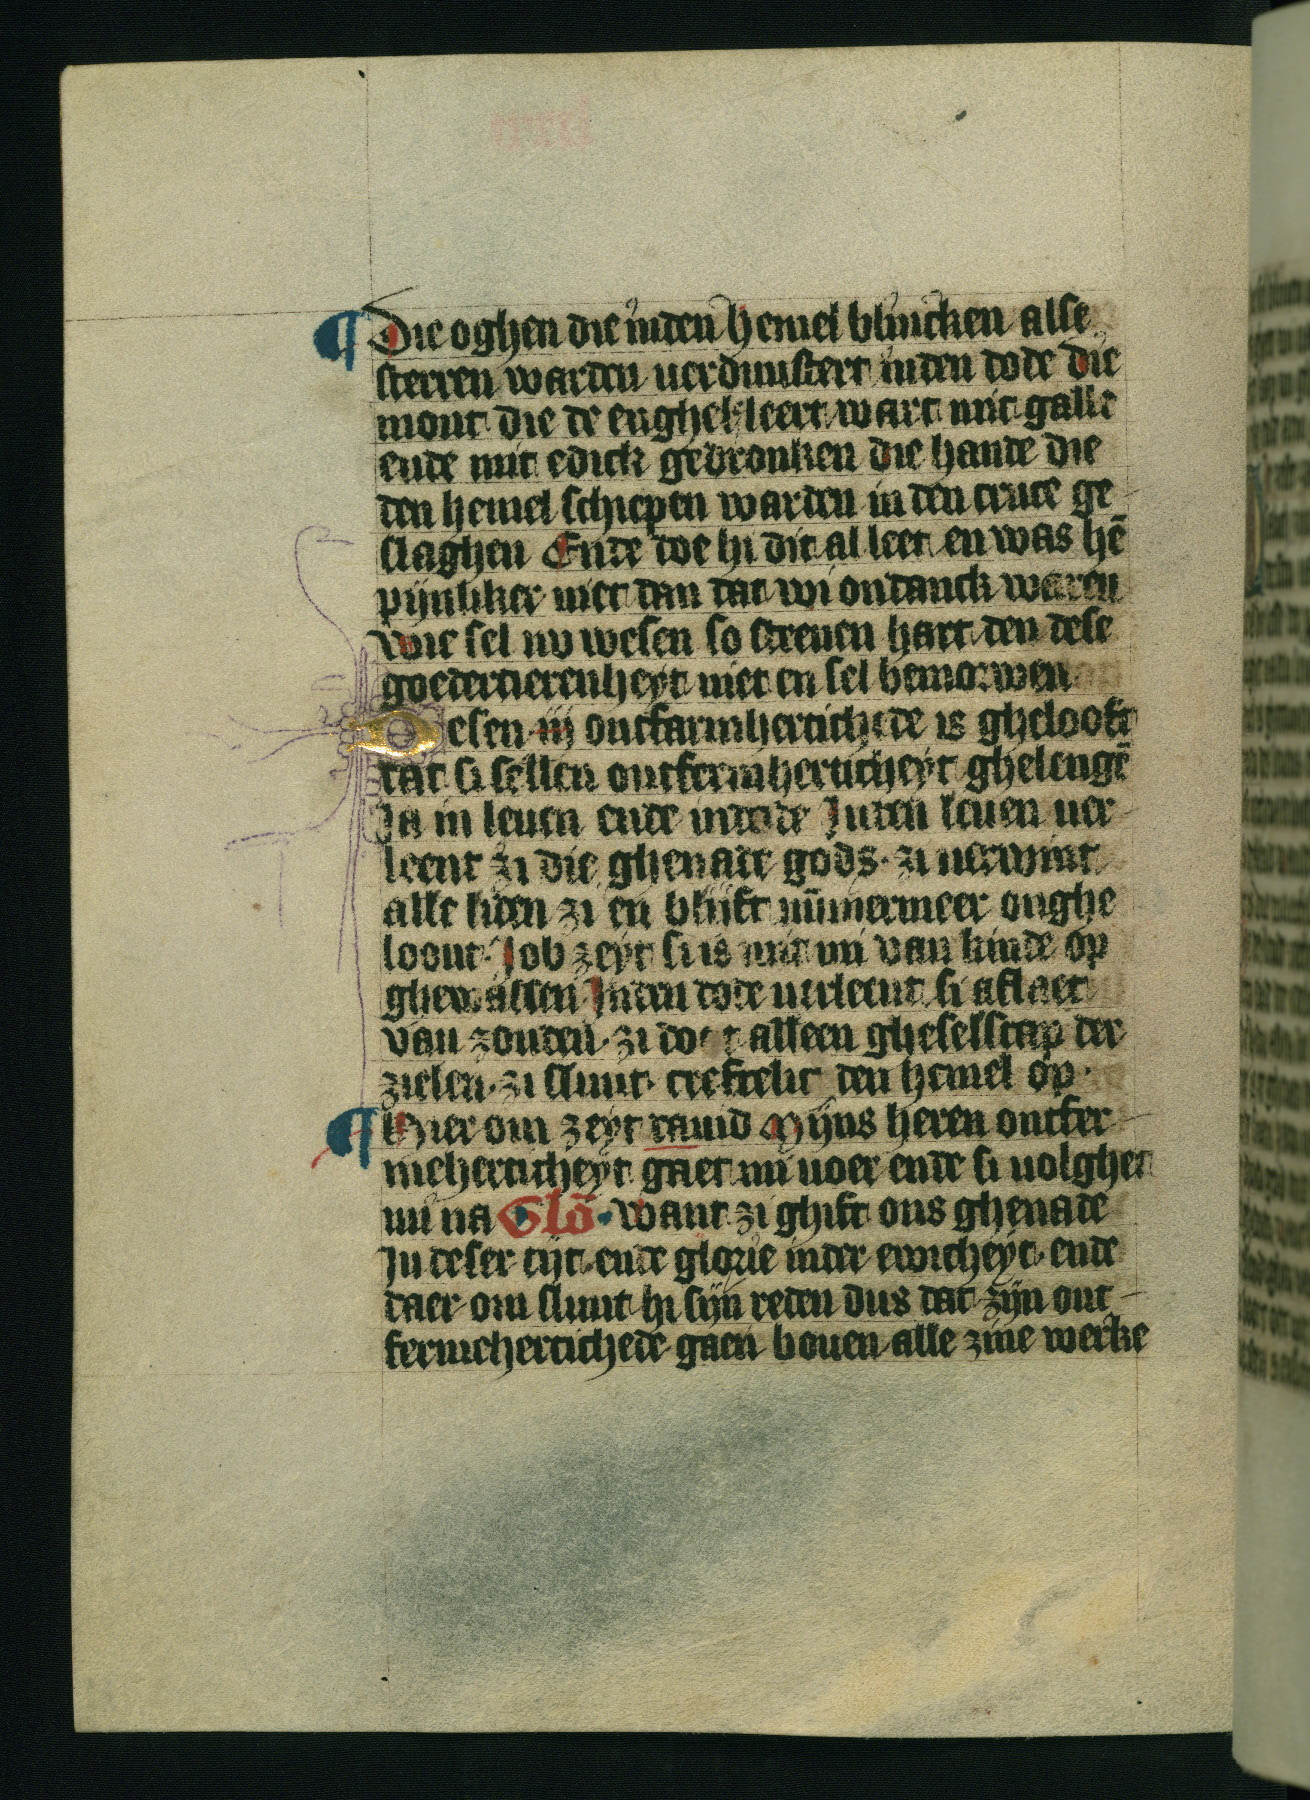 ¶ Die oghen die inden hemel blincken alse
sterren warden uerduustert inden dode die
mont die de enghel leert wart mit galle
ende mit edick gedronken die hande die
den hemel schiepen warden in den cruce ge
slaghen Ende doe hi dit al leet en was hē
pijnliker niet dan dat wi ondanck waren
wie sel nu wesen so stenen hart den dese
goedertierenheyt niet en sel bemorwen
Desen iij ontfarmhertichede is ghelooft
dat si sellen ontfermherticheyt ghelengē
Ja in leuen ende in dode Inden leuen uer
leent zi die ghenade gods · zi uerwint
alle liden zi en blijft nūmermeer onghe
loont · Job zeyt si is mit mi van kinde op
ghewassen Inden dode uerleent si aflaet
van zonden · zi doet alleen gheselscap der
zielen · zi sluut creftelic den hemel op ·
¶ Hier om zeyt dauid Mijns heren ontfer
meherticheẏt gaet mi uoer ende si uolghet
mi na Glō · want zi ghift ons ghenade
In deser tijt · ende glorie inder ewicheyt · ende
daer om sluut hi sijn reden dus dat zijn ont
fermehertichede gaen bouen alle zine werke